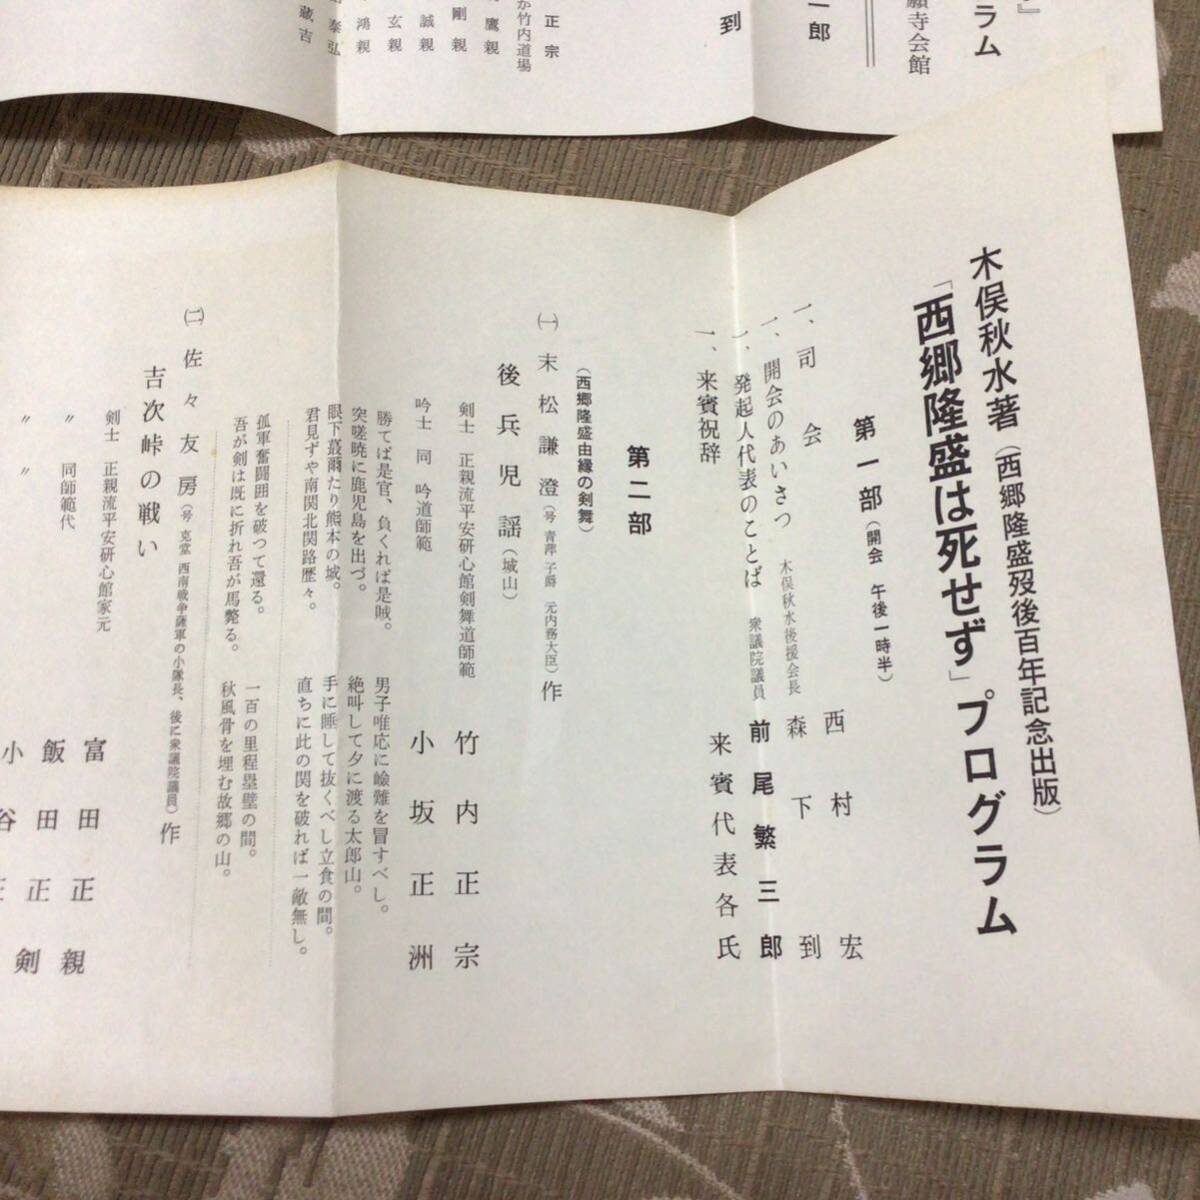 ラム
願寺会館
一郎
到
正宗
竹内道場
鷹親
剛親
誠親
玄親
鴻親
泰弘
蔵吉
木俣秋水著(西郷隆盛歿後百年記念出版)
「西郷隆盛は死せず」プログラム
第一部(開会 午後一時半)
一、司会 西村宏
一、開会のあいさつ 木俣秋水後援会長 森下到
一、発起人代表のことば 衆議院議員 前尾繁三郎
一、来賓祝辞 来賓代表各氏
第二部
(西郷隆盛由縁の剣舞)
㈠ 末松謙澄(号 青萍 子爵 元内務大臣)作
後兵児謡(城山)
剣士 正親流平安研心館剣舞道師範 竹内正宗
吟士 同 吟道師範 小坂正洲
勝てば是官、負くれば是賊。 男子唯応に嶮難を冒すべし。
突嗟暁に鹿児島を出づ。 絶叫して夕に渡る太郎山。
眼下蕞爾たり熊本の城。 手に唾して抜くべし立食の間。
君見ずや南関北関路歴々。 直ちに此の関を破れば一敵無し。
孤軍奮闘囲を破つて還る。 一百の里程塁壁の間。
吾が剣は既に折れ吾が馬斃る。 秋風骨を埋む故郷の山。
㈡ 佐々友房(号 克堂 西南戦争薩軍の小隊長、後に衆議院議員)作
吉次峠の戦い
剣士 正親流平安研心館家元 富田正親
〃 同師範代 飯田正剣
〃 〃 小谷正